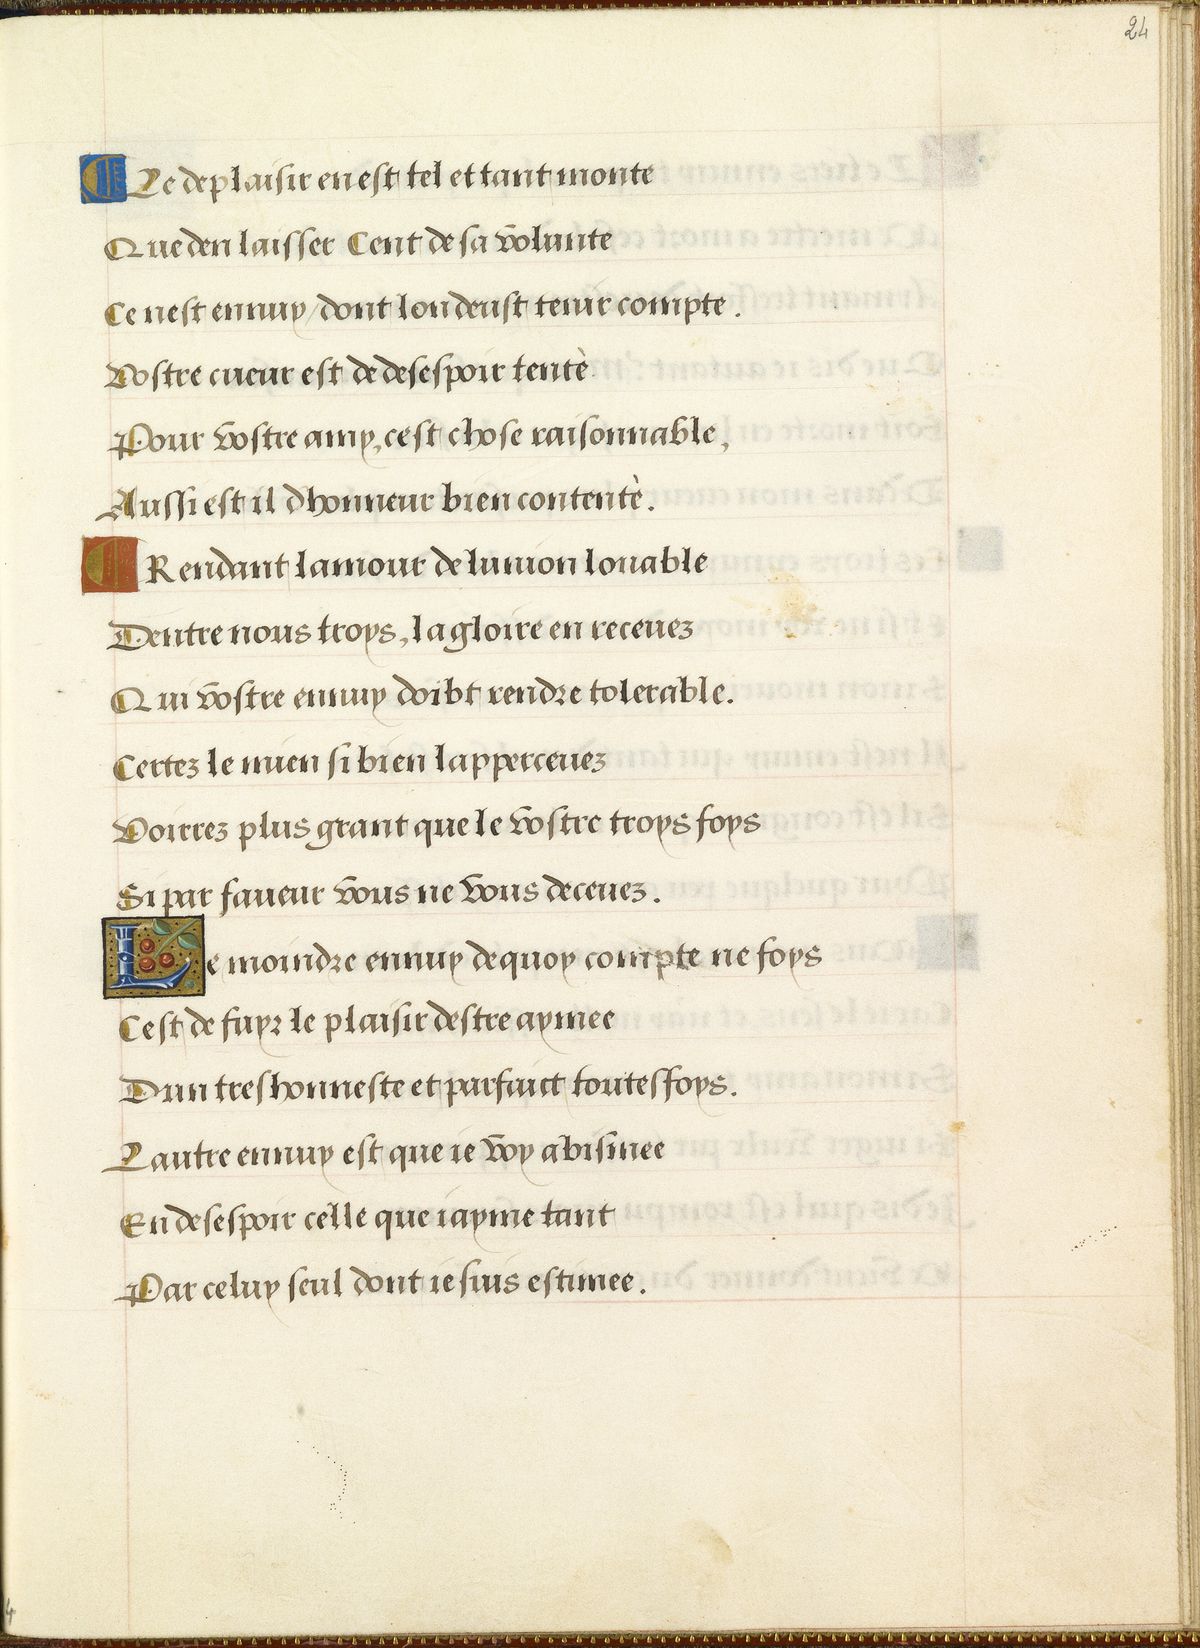 24
¶ Le deplaisir en est tel et tant monte
Que den laisser Cent de sa volunte
Ce nest ennuy / dont lon deust tenir compte.
Vostre cueur est de desespoir tentè
Pour vostre amy, cest chose raisonnable,
Aussi est il dhonneur bien contentè.
¶ Rendant lamour de lunion louable
Dentre nous troys, la gloire en receuez
Qui vostre ennuy doibt rendre tolerable.
Certez le mien si bien lapperceuez
Voirrez plus grant que le vostre troys foys
Si par faueur vous ne vous deceuez.
Le moindre ennuy dequoy compte ne foys
Cest de fuyr le plaisir destre aymee
Dun treshonneste et parfaict toutesfoys.
Lautre ennuy est que ie voy abismee
En desespoir celle que iayme tant
Par celuy seul dont ie suis estimee.